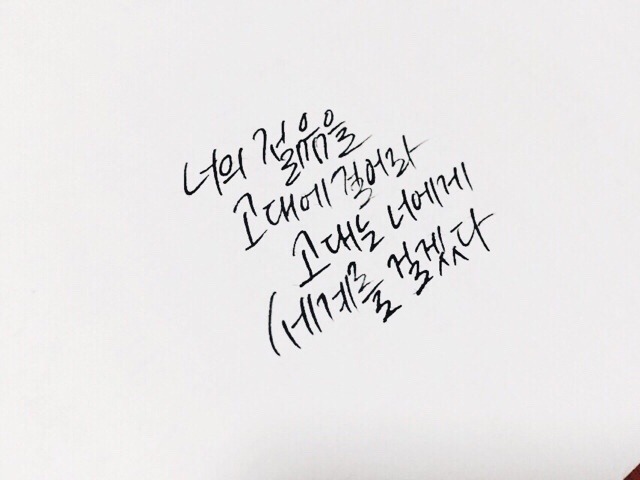 너의 젊음을
고대에 걸어라
고대는 너에게
세계를 걸겠다